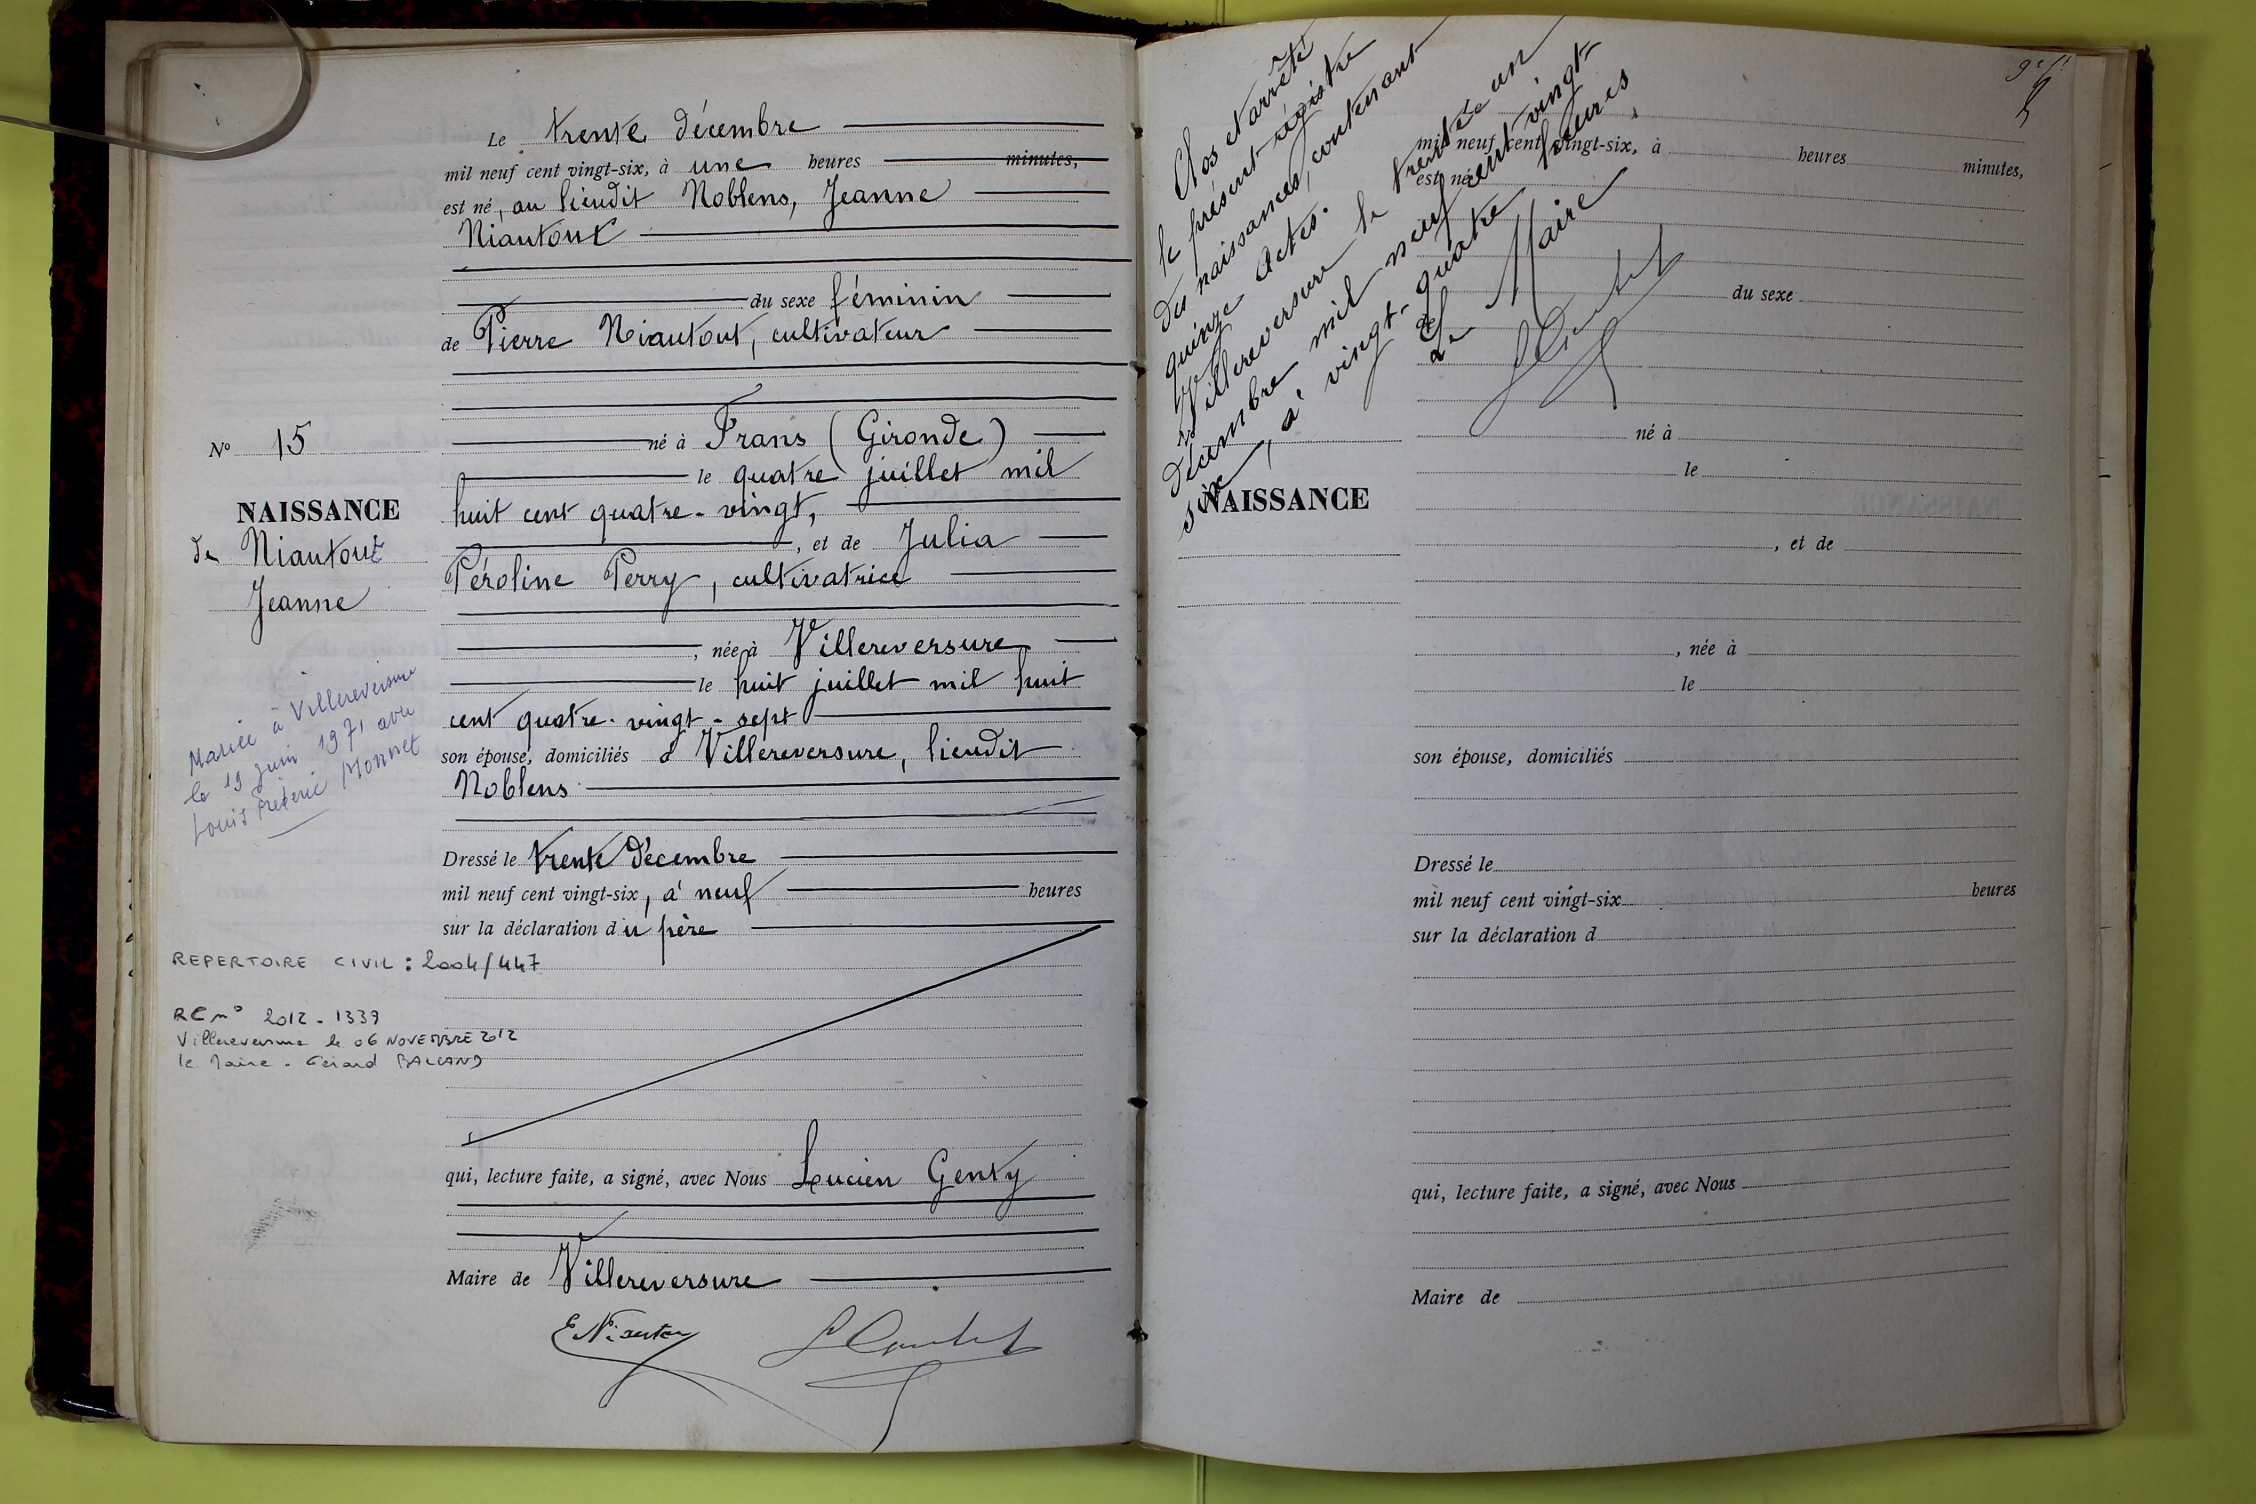 Le trente décembre
mil neuf cent vingt-six, à une heures minutes,
est né, au lieudit Noblens, Jeanne
Niautout
du sexe féminin
de Pierre Niautout, cultivateur
né à Frans (Gironde)
le quatre juillet mil
huit cent quatre-vingt,
, et de Julia
Péroline Perry, cultivatrice
, née à Villereversure
le huit juillet mil huit
cent quatre-vingt-sept
son épouse, domiciliés à Villereversure, lieudit
Noblens
Dressé le trente décembre
mil neuf cent vingt-six, à neuf heures
sur la déclaration du père
qui, lecture faite, a signé, avec Nous Lucien Genty
Maire de Villereversure
E Niautou
No 15
NAISSANCE
de Niautout
Jeanne
Mariée à Villereversure
le 19 juin 1971 avec
Louis Frédéric Monnet
REPERTOIRE CIVIL : 2004/447
RC n° 2012-1339
Villereversure le 06 NOVEMBRE 2012
le Maire - Gérard BALLAND
Clos et arrêté
le présent régistre
des naissances, contenant
quinze actes.
Villereversure le trente un
décembre mil neuf cent vingt-
six, à vingt-quatre heures
Le Maire
mil neuf cent vingt-six, à heures minutes,
est né
du sexe
de
né à
le
NAISSANCE
, et de
, née à
le
son épouse, domiciliés
Dressé le
mil neuf cent vingt-six heures
sur la déclaration d
qui, lecture faite, a signé, avec Nous
Maire de